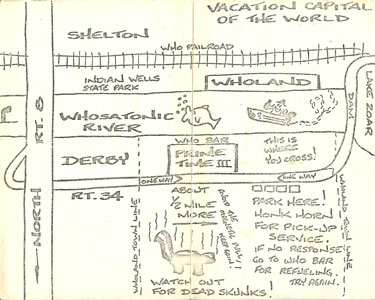 VACATION CAPITAL
OF THE WORLD
SHELTON
WHO RAILROAD
INDIAN WELLS
STATE PARK
WHOLAND
LAKE ZOAR
DAM
WHOSATONIC
RIVER
RT. 8
WHO BAR
PRIME
TIME III
THIS IS
WHERE
YOU CROSS!
DERBY
ONE WAY
ONE WAY
RT. 34
NORTH
WHOLAND TOWN LINE
ABOUT
1/2 MILE
MORE
KEEP GOIN'!
PARK HERE!
HONK HORN
FOR PICK-UP
SERVICE.
IF NO RESPONSE
GO TO WHO BAR
FOR REFUELING.
TRY AGAIN.
WHOLAND TOWN LINE
WATCH OUT
FOR DEAD SKUNKS!